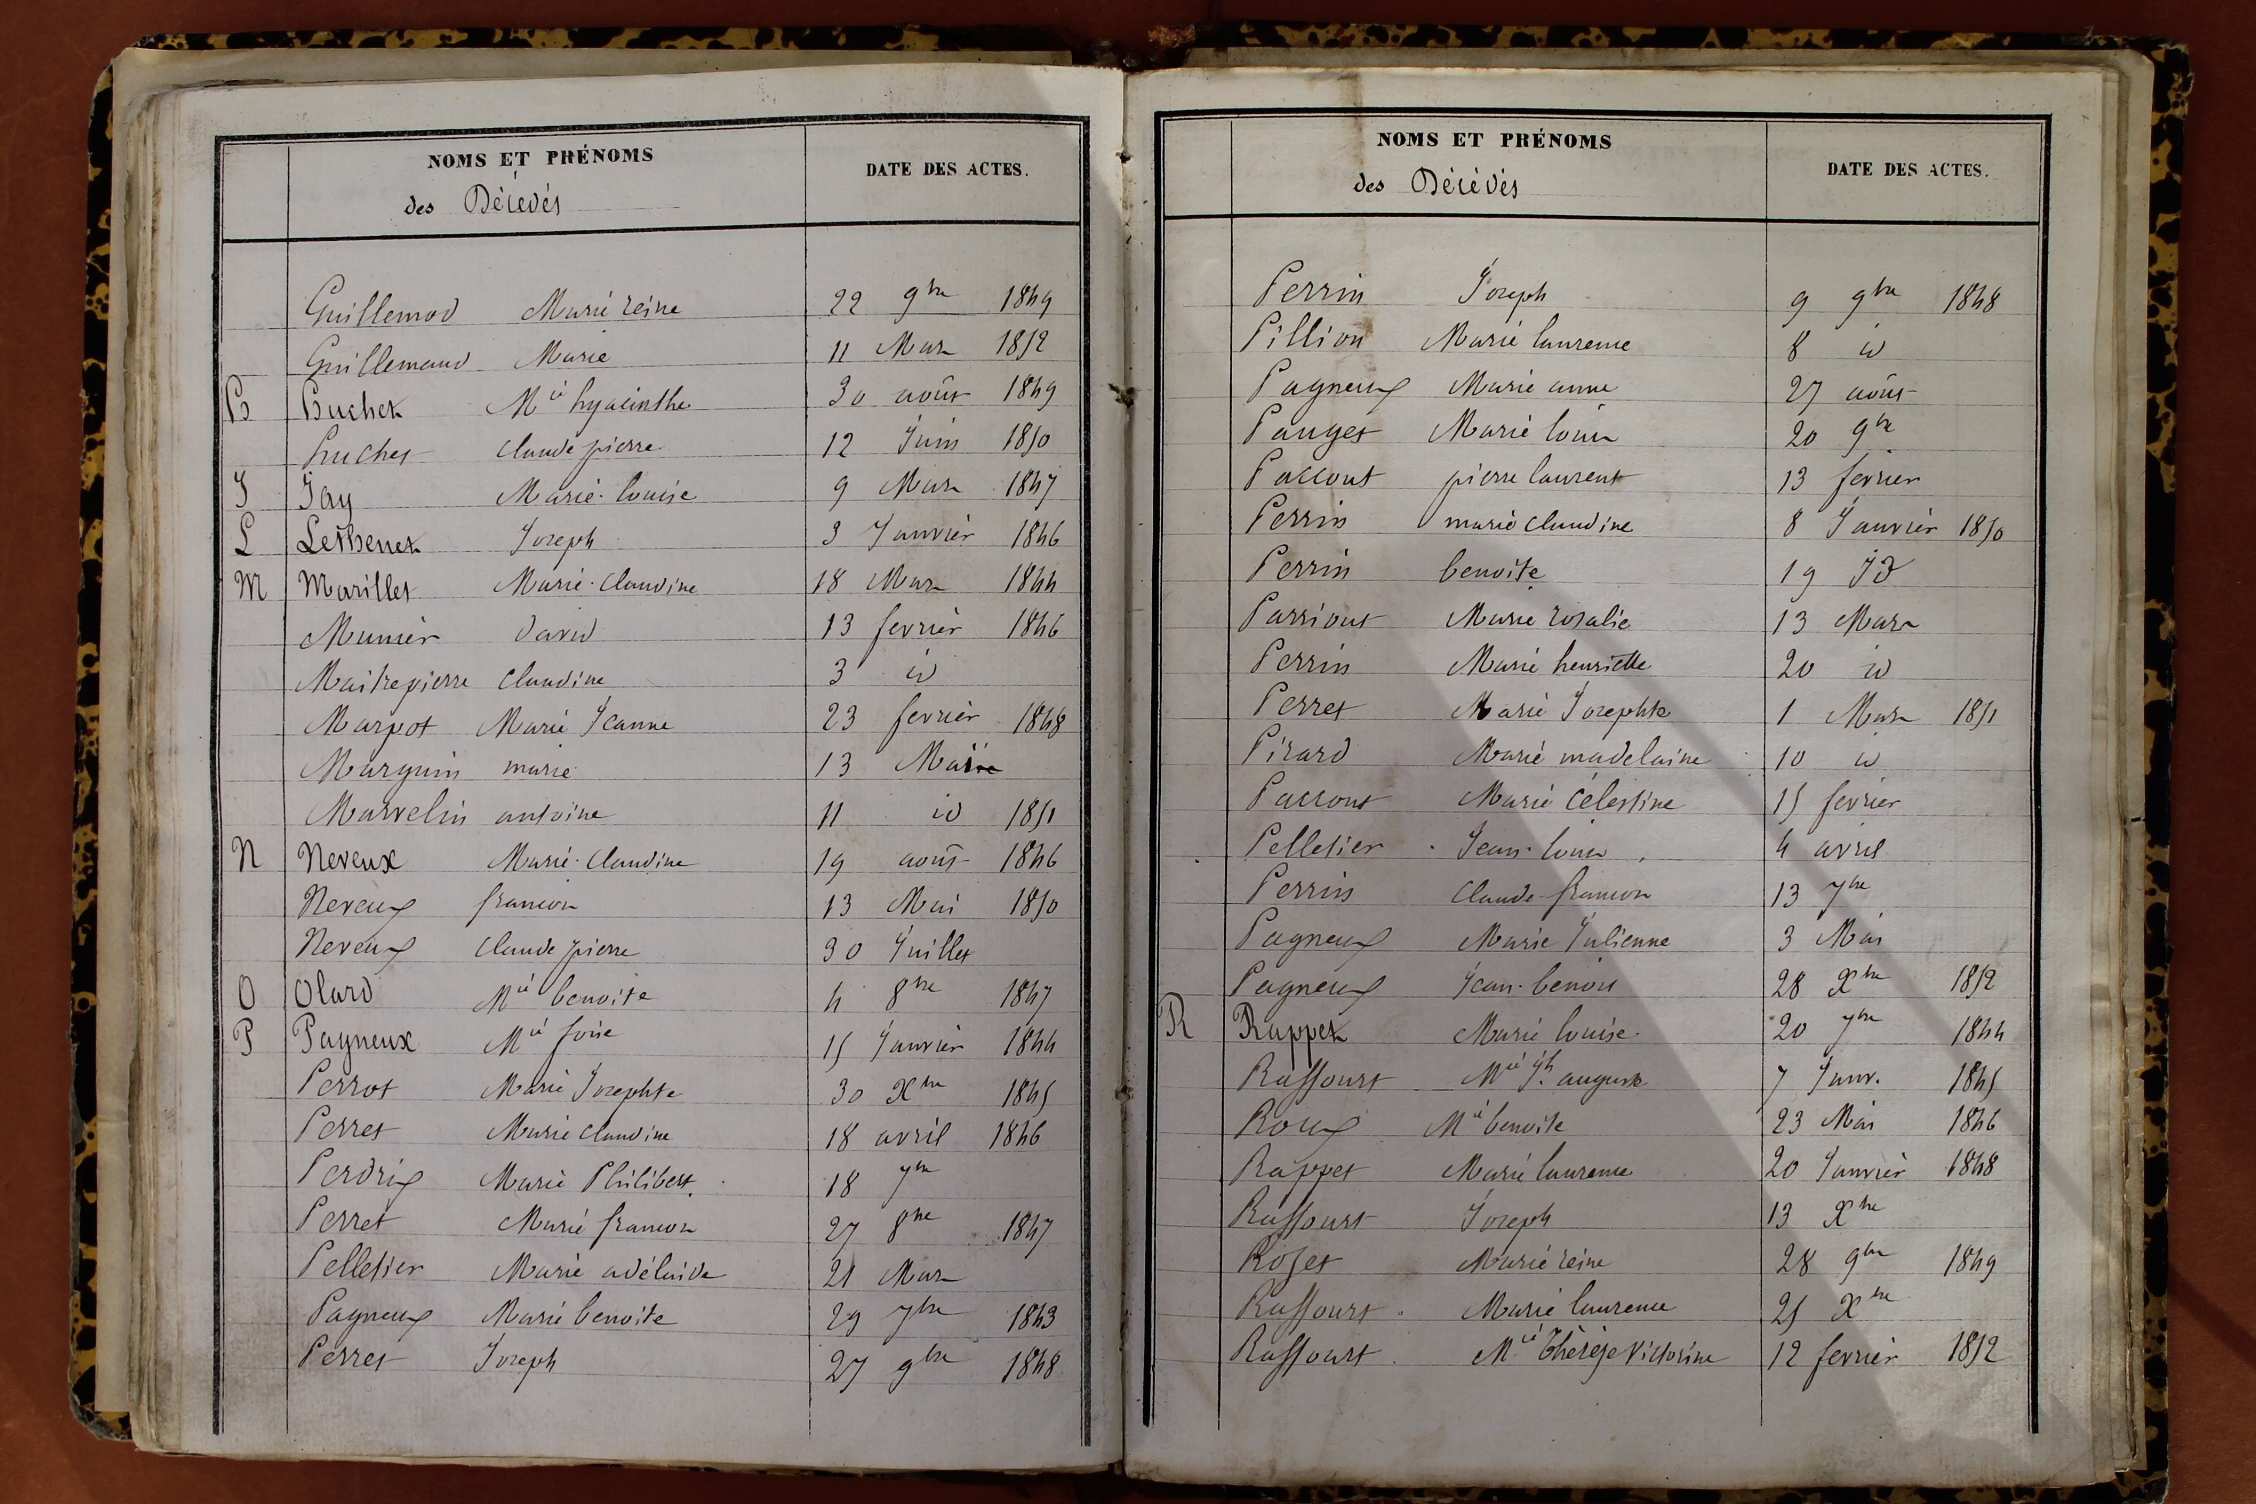 NOMS ET PRÉNOMS
des Décédés
DATE DES ACTES.
Guillemod Marie reine 22 9bre 1849
Guillemaud Marie 11 Mars 1852
H Huchet Mie hyacinthe 30 août 1849
Huchet Claude pierre 12 Juin 1850
J Jay Marie-louise 9 Mars 1847
L Lethenet Joseph 3 Janvier 1846
M Marillet Marie-Claudine 18 Mars 1844
Munier david 13 fevrier 1846
Maitrepierre Claudine 3 id
Marpot Marie Jeanne 23 fevrier 1848
Marguin marie 13 Mai
Marvelin antoine 11 id 1851
N Neveux Marie-Claudine 19 août 1846
Neveux francois 13 Mai 1850
Neveux Claude pierre 30 Juillet
O Olard Mie benoite 4 8bre 1847
P Pagneux Mie 15 Janvier 1844
Perrot Marie Josephte 30 Xbre 1845
Perret Marie Claudine 18 avril 1846
Perdrix Marie Philibert 18 7bre
Perret Marie francois 27 8bre 1847
Pelletier Marie adélaide 21 Mars
Pagneux Marie benoite 29 7bre 1843
Perret Joseph 27 9bre 1848
NOMS ET PRÉNOMS
des Décédés
DATE DES ACTES.
Perrin Joseph 9 9bre 1848
Pillion Marie laurence 8 id
Pagneux Marie anne 27 août
Pauget Marie louis 20 9bre
Paccout pierre laurent 13 fevrier
Perrin marie claudine 8 Janvier 1850
Perrin benoite 19 Id
Parriout Marie rosalie 13 Mars
Perrin Marie henriette 20 id
Perret Marie Josephte 1 Mars 1851
Pirard Marie madelaine 10 id
Paccout Marie Célestine 15 fevrier
Pelletier Jean-louis 4 avril
Perrin Claude francois 13 7bre
Pagneux Marie Julienne 3 Mai
Pagneux Jean-benoit 28 Xbre 1852
R Rappet Marie louise 20 7bre 1844
Raffourt Mie Jh auguste 7 Janv. 1845
Roux Mie benoite 23 Mai 1846
Rappet Marie laurence 20 Janvier 1848
Raffourt Joseph 13 Xbre
Rozet Marie reine 28 9bre 1849
Raffourt Marie laurence 25 Xbre
Raffourt Mie Thérèse Victorine 12 fevrier 1852